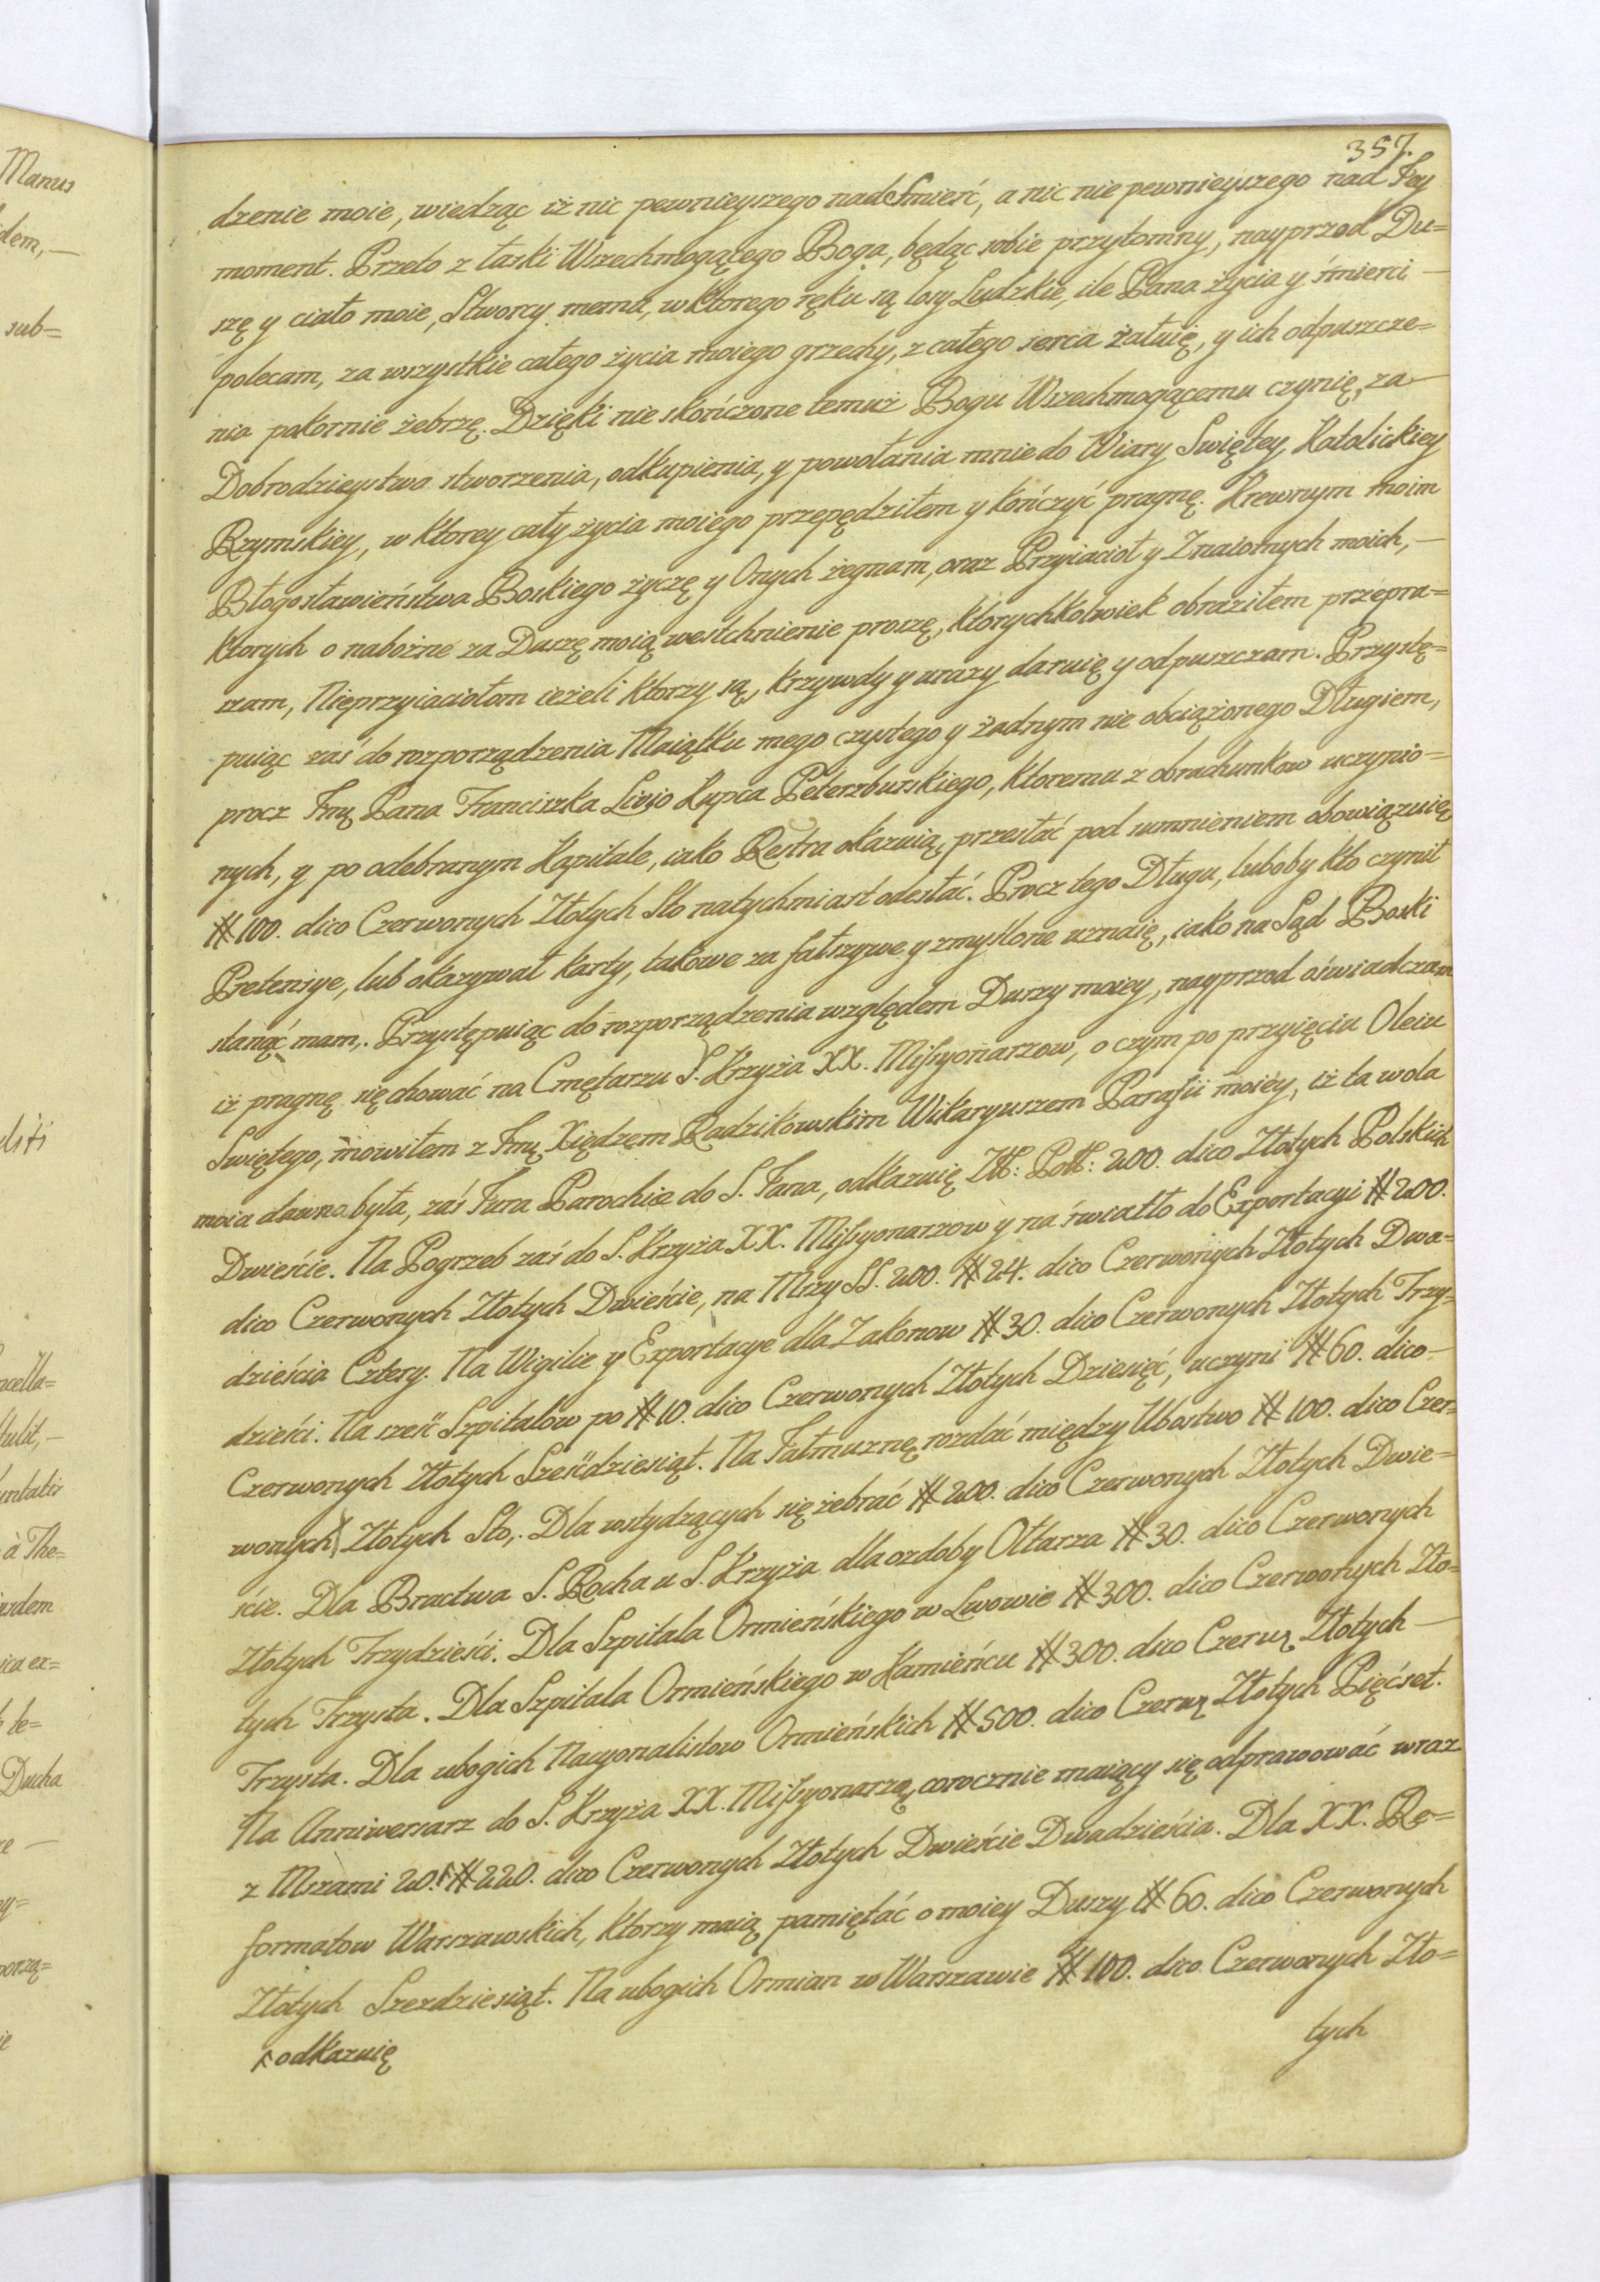 Manus
dem, —
sub=
ncella=
tulit, —
à The=
ica ex=
te=
Ducha
porzą=
357.
dzenie moie, wiedząc iż nic pewnieyszego nad Smierć, a nic nie pewnieyszego nad Jey
moment. Przeto z łaski Wszechmogącego Boga, będąc sobie przytomny, nayprzod Du=
szę y ciało moie, Stworcy memu, w ktorego ręku są losy Ludzkie, ile Pana życia y śmierci —
polecam, za wszystkie całego życia moiego grzechy, z całego serca żałuię, y ich odpuszcze=
nia pokornie żebrzę. Dzięki nie skończone temuż Bogu Wszechmogącemu czynię, za —
Dobrodzieystwa stworzenia, odkupienia, y powołania mnie do Wiary Swiętey Katolickiey
Rzymskiey, w ktorey cały życia moiego przepędziłem y kończyć pragnę. Krewnym moim
Błogosławieństwa Boskiego życzę y Onych żegnam, oraz Przyiacioł y Znaiomych moich, —
ktorych o nabożne za Duszę moią westchnienie proszę, ktorychkolwiek obraziłem przepra=
szam, Nieprzyiaciołom ieżeli ktorzy są, krzywdy y urazy daruię y odpuszczam. Przystę=
puiąc zaś do rozporządzenia Maiątku mego czystego y żadnym nie obciążonego Długiem,
procz Jmę Pana Franciszka Livio Kupca Peterzburskiego, ktoremu z obrachunkow uczynio=
nych, y po odebranym Kapitale, iako Restra okazuią, przesłać pod sumnieniem obowiązuię
# 100. dico Czerwonych Złotych Sto natychmiast odesłać. Procz tego Długu, luboby kto czynił
Pretensye, lub okazywał karty, takowe za fałszywe y zmyślone uznaię, iako na Sąd Boski
stanąć mam,. Przystępuiąc do rozporządzenia względem Duszy moiey, nayprzod oświadczam
iż pragnę się chować na Cmętarzu S. Krzyża XX. Missyonarzow, o czym po przyięciu Oleiu
Swiętego, mowiłem z Jmę Xiędzem Radzikowskim Wikaryuszem Parafii moiey, iż ta wola
moia dawna była, zaś Jura Parochiæ do S. Jana, odkazuię Złł: Poll: 200. dico Złotych Polskich
Dwieście. Na Pogrzeb zaś do S. Krzyża XX. Missyonarzow y na światło do Exportacyi # 200.
dico Czerwonych Złotych Dwieście, na Mszy SS. 200. # 24. dico Czerwonych Złotych Dwa=
dzieścia Cztery. Na Wigilie y Exportacye dla Zakonow # 30. dico Czerwonych Złotych Trzy=
dzieści. Na sześć Szpitalow po # 10. dico Czerwonych Złotych Dziesięć, uczyni # 60. dico —
Czerwonych Złotych Sześćdziesiąt. Na Jałmużnę rozdać między Ubostwo # 100. dico Czer=
wonych Złotych Sto,. Dla wstydzących się żebrać # 200. dico Czerwonych Złotych Dwie=
ście. Dla Bractwa S. Rocha u S. Krzyża dla ozdoby Ołtarza # 30. dico Czerwonych
Złotych Trzydzieści. Dla Szpitala Ormieńskiego w Lwowie # 300. dico Czerwonych Zło=
tych Trzysta. Dla Szpitala Ormieńskiego w Kamieńcu # 300. dico Czerwę Złotych —
Trzysta. Dla ubogich Nacyonalistow Ormieńskich # 500. dico Czerwę Złotych Pięćset.
Na Anniwersarz do S. Krzyża XX. Missyonarzę, corocznie maiący się odprawować wraz
z Mszami 20. # 220. dico Czerwonych Złotych Dwieście Dwadzieścia. Dla XX. Re=
formatow Warszawskich, ktorzy maią pamiętać o moiey Duszy # 60. dico Czerwonych
Złotych Szezdziesiąt. Na ubogich Ormian w Warszawie # 100. dico Czerwonych Zło=
tych
odkazuię